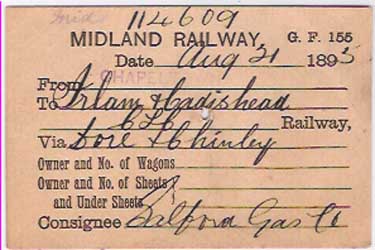 Mid 114609
MIDLAND RAILWAY. G. F. 155
Date Aug 21 1895
From CHAPELTOWN
To Irlam & Cadishead
CLC Railway,
Via Dore & Chinley
Owner and No. of Wagons
Owner and No. of Sheets
and Under Sheets
Consignee Salford Gas Co